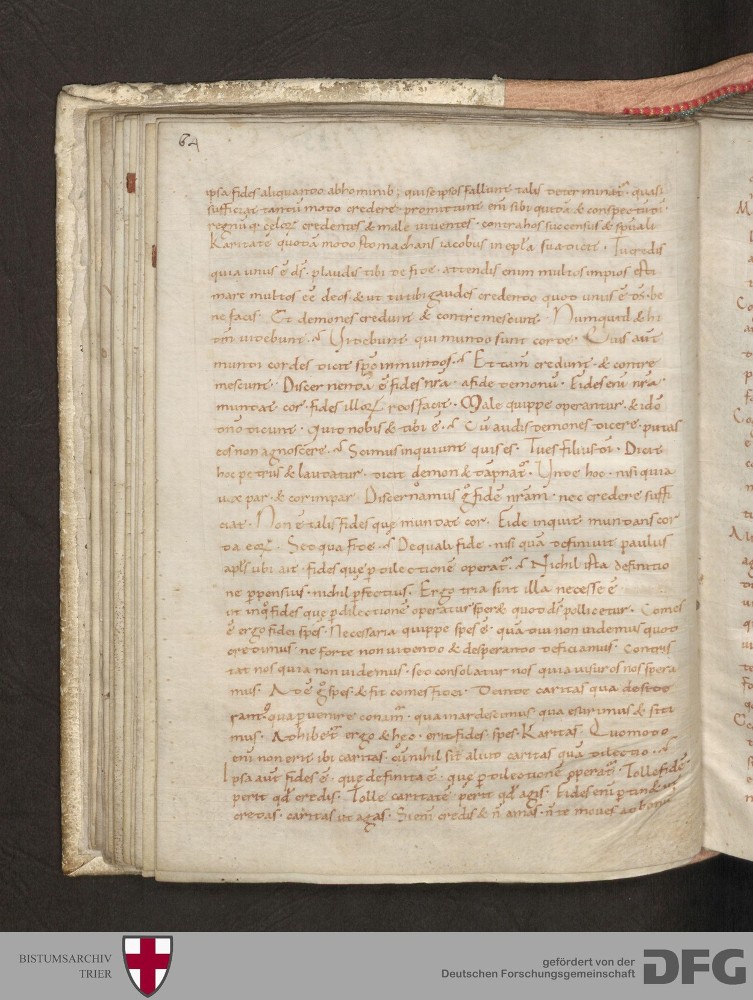 64
ipsa fides aliquando ab hominib; qui se ipsos fallunt talis determinat̄ quasi
sufficiat tantū modo credere. promittunt enī sibi
credentes & male viventes. contra hos succensus & spūali
Karitate quodā modo stomachans iacobus in eplā sua dicit. Tu credis
quia unus ē dꝰ. plaudis tibi de fide. attendis enim multos impios esti
mare multos eē deos. & ut tu tibi gaudes credendo quod unus ē dꝰ. be
ne facis. Et demones credunt & contremescunt. Numquid & hi
dm̄ videbunt. Videbunt. qui mundo sunt corde. Quis aut̄
mundi cordes dicit spꝰ inmundos. Et tam̄ credunt. & contre
mescunt. Discernenda ē fides nr̄a. a fide demonū. Fides enī nr̄a
mundat cor. fides illoꝝ reos facit. Male quippe operantur. & ido
dn̄o dicunt. Quid nobis & tibi ē. Cū audis demones dicere. putas
eos non agnoscere. Scimus inquiunt quis es. Tu es filius dī. Dicit
hoc petrus & laudatur. dicit demon & dāpnat̄. Unde hoc. nisi quia
vox par. & cor inpar. Discernamus g̊ fidē nr̄am. nec credere suffi
ciat. Non ē talis fides quę mundat cor. Fide inquit mundans cor
da eoꝝ. Sed qua fide. De quali fide. nisi quā definiuit paulus
apl̄s ubi ait. fides quę p dilectionē operat̄. Nichil ista definitio
ne ppensius. nichil pfectius. Ergo tria sint illa necesse ē
ut inq̊ fides quę p dilectionē operatur speret quod dꝰ pollicetur. Comes
ē ergo fidei spes. Necessaria quippe spes ē. quādiu non uidemus quod
credimus. ne forte non uidendo & desperando deficiamus. Contris
tat nos quia non uidemus. sed consolatur nos quia visuros nos spera
mus. Adē g̊ spes. & fit comes fidei. Deinde caritas qua deside
ram. qua puenire conam̄. qua inardescimus. qua esurimus & siti
mus. Adhibet̄ ergo & hęc. erit fides. spes. Karitas. Quomodo
enī non erit ibi caritas. cū nihil sit aliud caritas quā dilectio.
Ipsa aut̄ fides ē. que definita ē. quę p dilectionē operat̄. Tolle fidē
perit qd̄ credis. Tolle caritatē. perit qd̄ agis. Fides enī ptin& ut
credas. caritas ut agas. Si enī credis & n̄ amas. n̄ te moues ad bonū
BISTUMSARCHIV
TRIER
gefördert von der
Deutschen Forschungsgemeinschaft
DFG